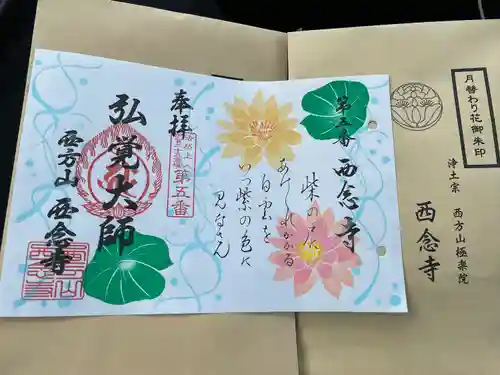 月替わり花御朱印
浄土宗　西方山極楽院
西念寺
第五番　西念寺
柴の戸に
あけくれかかる
白雲を
いつ紫の色に
見なさん
奉拝
第五番
弘覚大師
西方山　西念寺